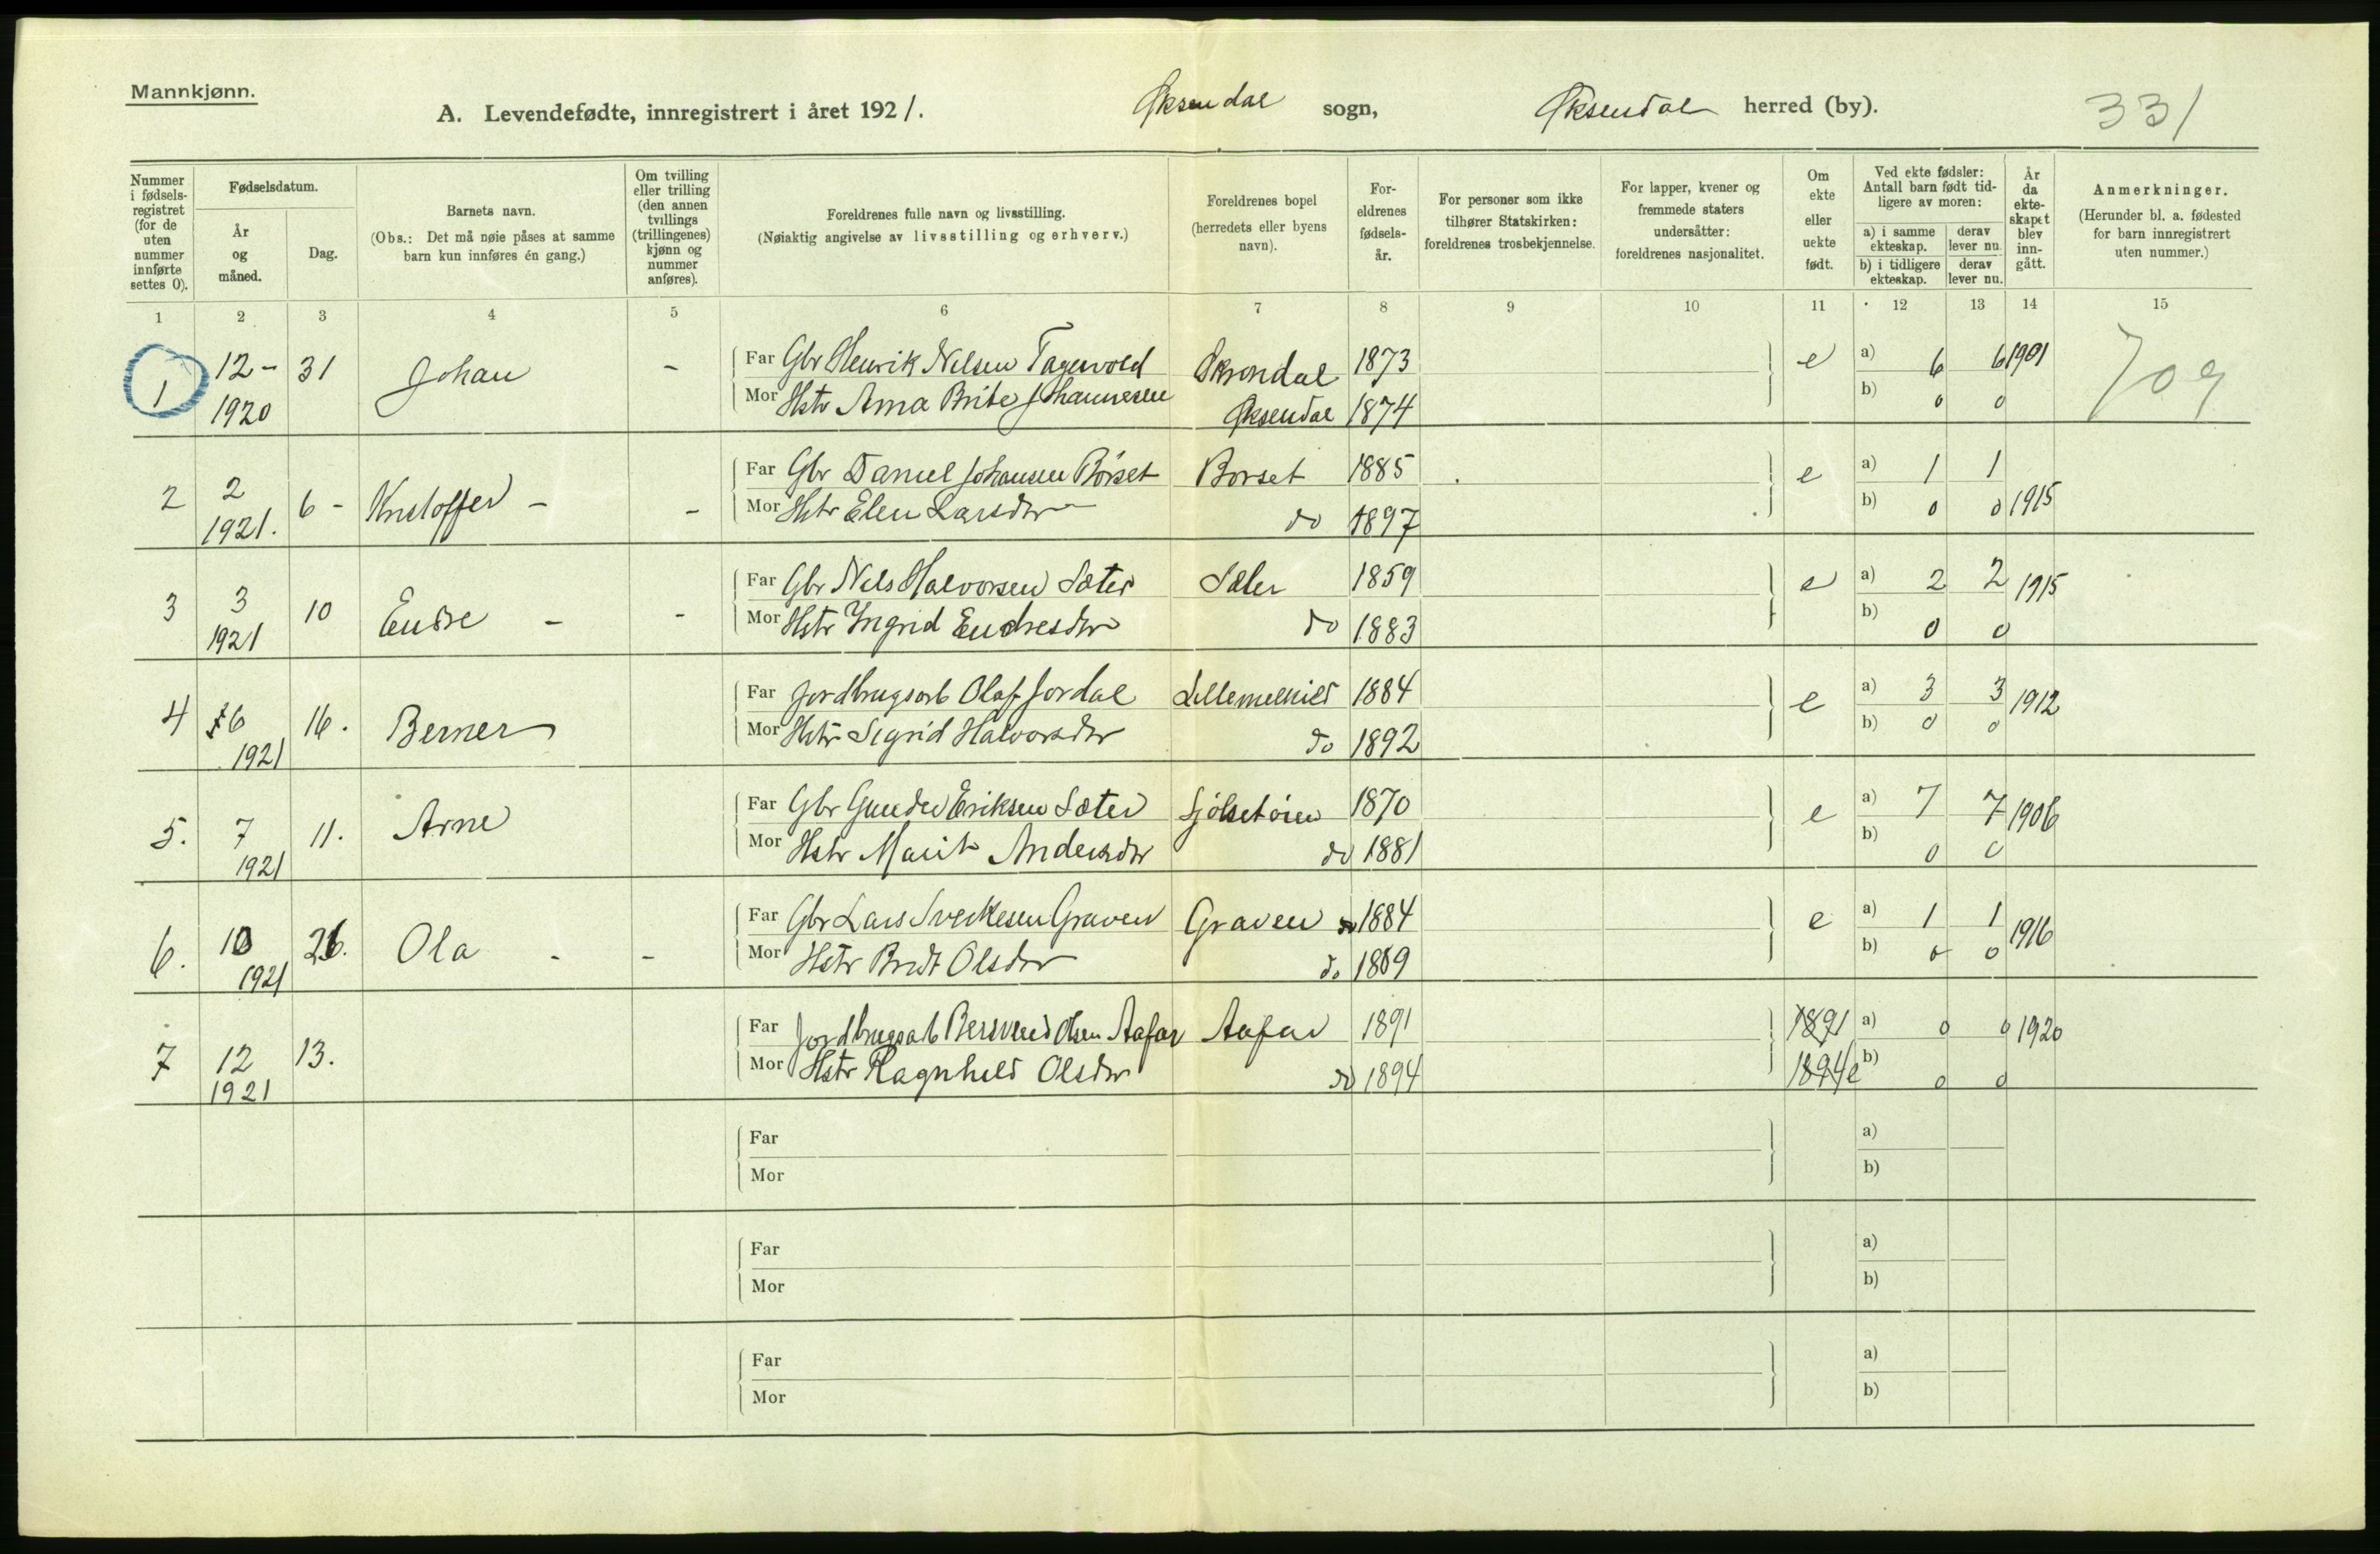 Mannkjønn.
A. Levendefødte, innregistrert i året 1921. Øksendal sogn, Øksendal herred (by). 331
Nummer i fødselsregistret (for de uten nummer innførte settes 0).
Fødselsdatum.
År og måned.
Dag.
Barnets navn.
(Obs.: Det må nøie påses at samme barn kun innføres én gang.)
Om tvilling eller trilling (den annen tvillings (trillingenes) kjønn og nummer anføres).
Foreldrenes fulle navn og livsstilling.
(Nøiaktig angivelse av livsstilling og erhverv.)
Foreldrenes bopel (herredets eller byens navn).
Foreldrenes fødselsår.
For personer som ikke tilhører Statskirken: foreldrenes trosbekjennelse.
For lapper, kvener og fremmede staters undersåtter: foreldrenes nasjonalitet.
Om ekte eller uekte født.
Ved ekte fødsler: Antall barn født tidligere av moren:
a) i samme ekteskap. derav lever nu.
b) i tidligere ekteskap. derav lever nu.
År da ekteskapet blev inngått.
Anmerkninger.
(Herunder bl. a. fødested for barn innregistrert uten nummer.)
1 2 3 4 5 6 7 8 9 10 11 12 13 14 15
1 12- 31 Johan - Far Gbr Henrik Nilsen 1873 e a) 6 6 1901 709
1920 Mor Hstr Brite Johannesen Øksendal 1874 b) 0 0
2 2 6 - Kristoffer - - Far Gbr Daniel Johansen Børset Borset 1885 e a) 1 1
1921. Mor Hstr Elen Larsdtr do 1897 b) 0 0 1915
3 3 10 Endre - - Far Gbr Nels Halvorsen Sæter Sæter 1859 e a) 2 2 1915
1921 Mor Hstr Ingrid Endresdtr do 1883 b) 0 0
4 6 16. Berner Far Jordbrugsarb Olaf Jordal 1884 e a) 3 3 1912
1921 Mor Hstr Sigrid Halvorsdtr do 1892 b) 0 0
5. 7 11. Arne Far Gbr Eriksen Sæter 1870 e a) 7 7 1906
1921 Mor Hstr Marit Andersdtr do 1881 b) 0 0
6. 10 26. Ola - - Far Gbr Lars Graven Graven 1884 e a) 1 1 1916
1921 Mor Hstr Olsdtr do 1889 b) 0 0
7 12 13. Far Jordbrugsarb Olsen Aafar Aafar 1891 1891 a) 0 0 1920
1921 Mor Hstr Ragnhild Olsdtr do 1894 1894 e b) 0 0
Far a)
Mor b)
Far a)
Mor b)
Far a)
Mor b)